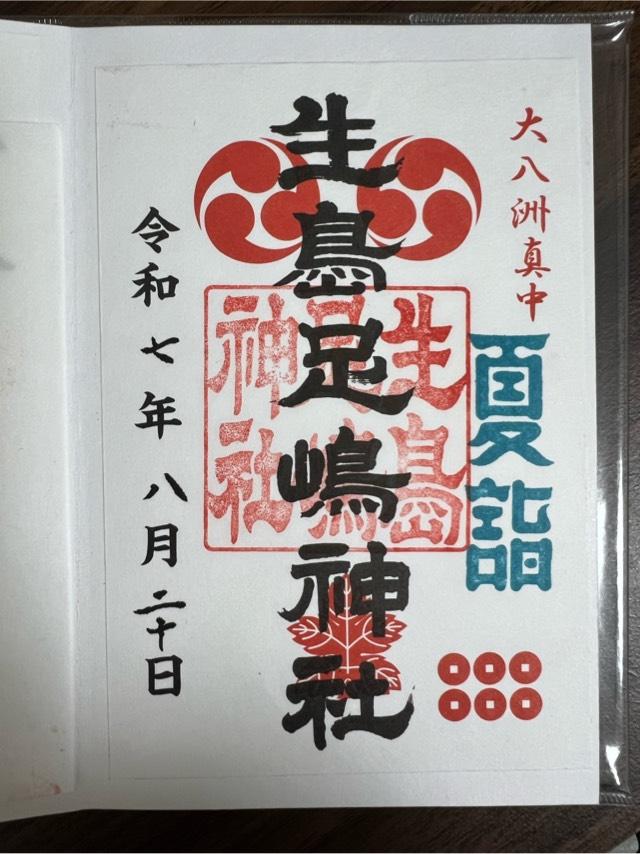 大八洲真中
夏詣
生島足嶋神社
生島
足嶋
神社
令和七年八月二十日